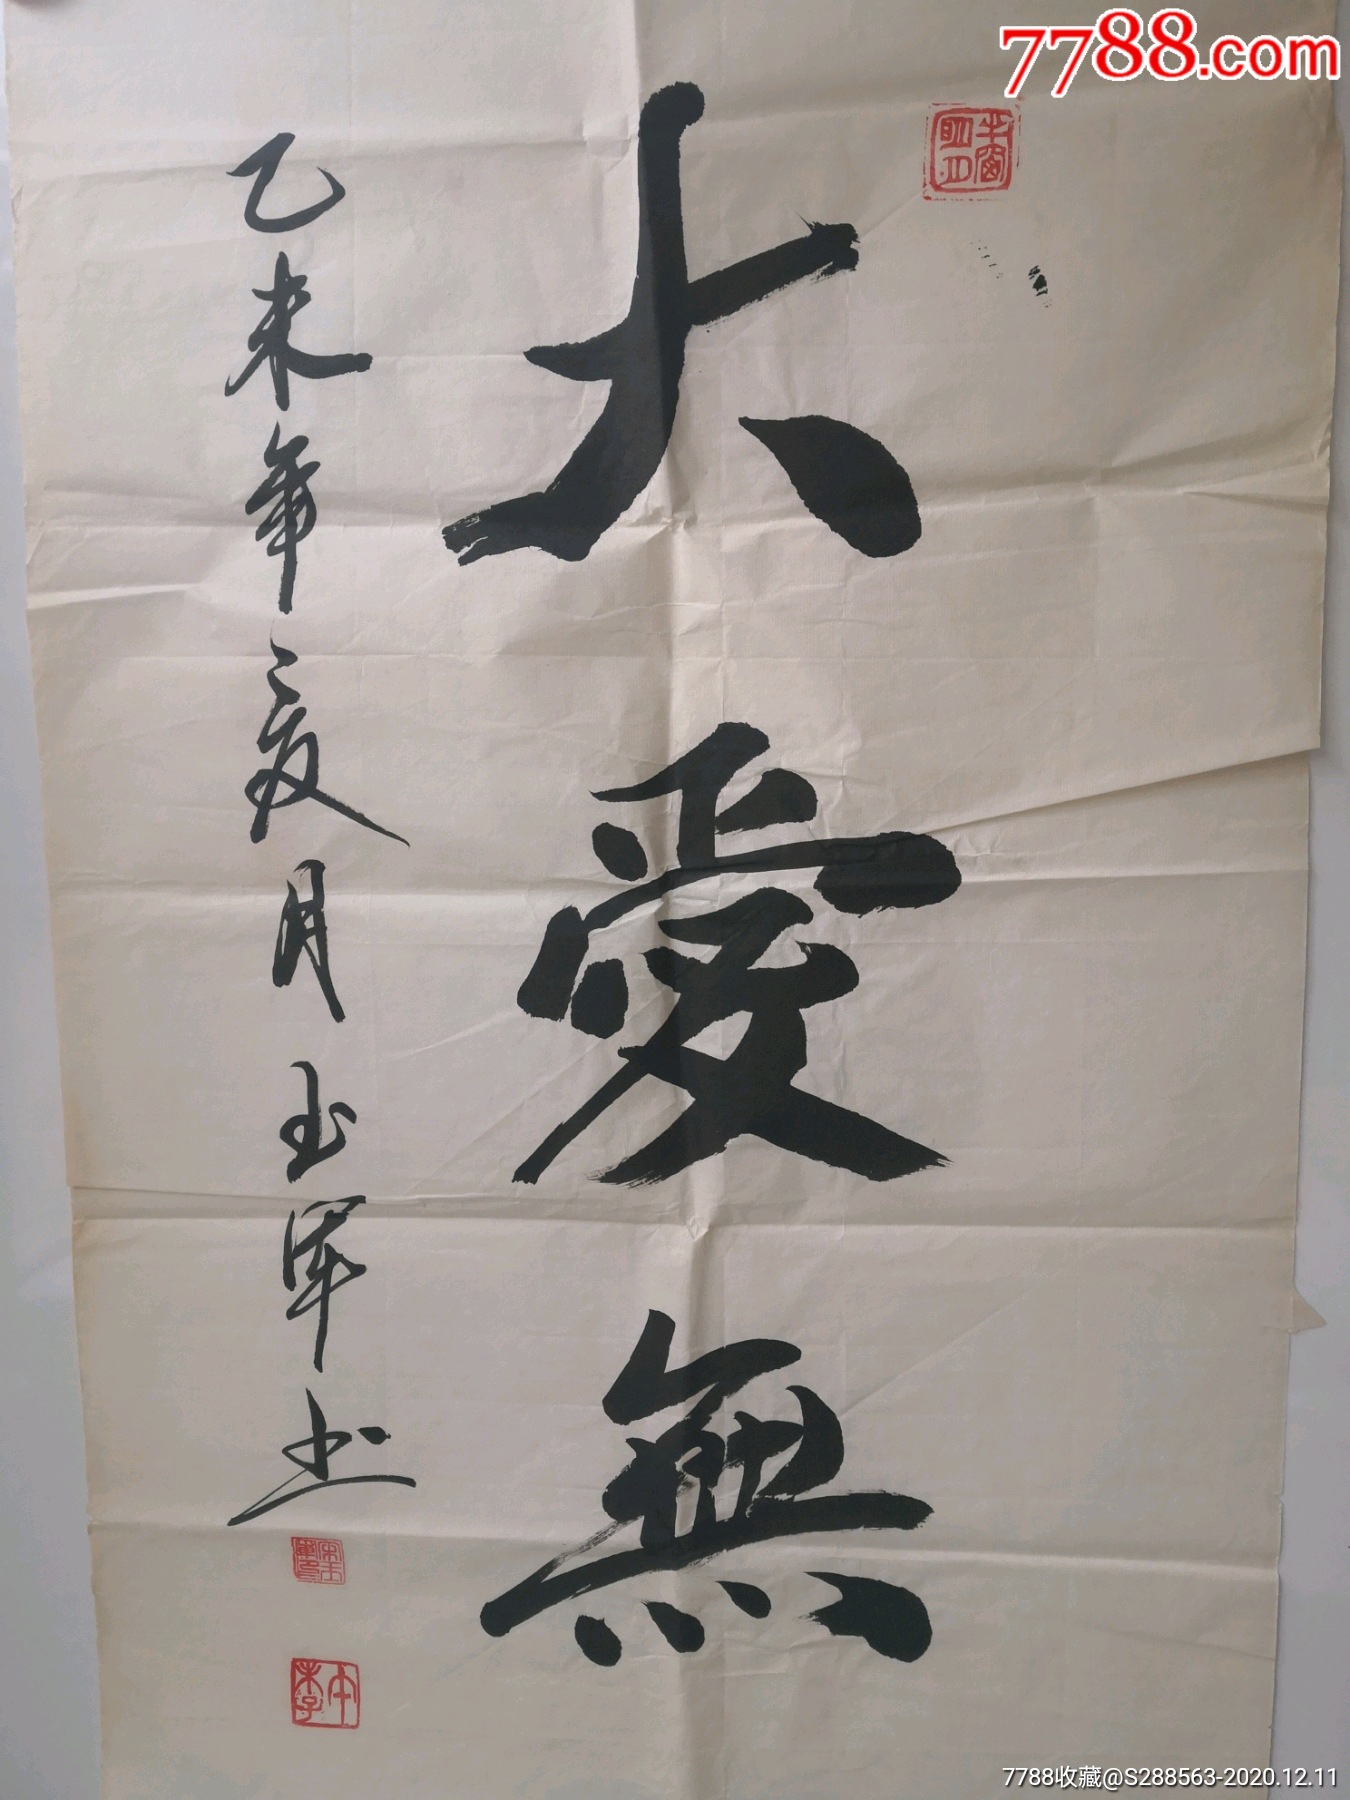 7788.com
半窗明月
大愛無
乙未年夏月玉军书
7788收藏@S288563-2020.12.11